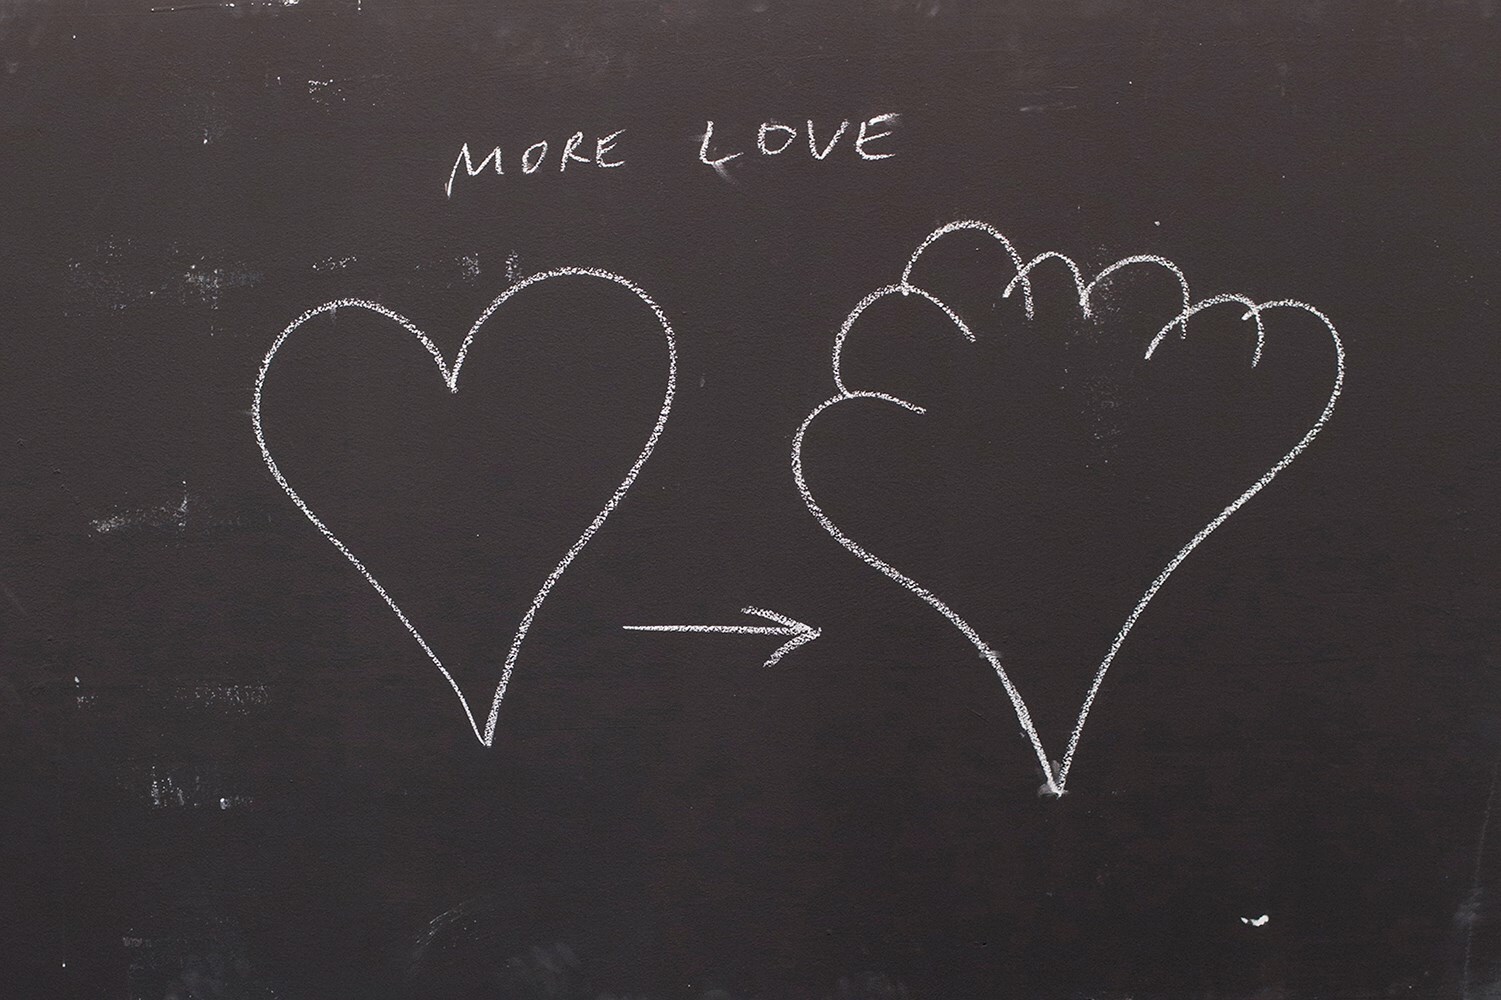 MORE LOVE